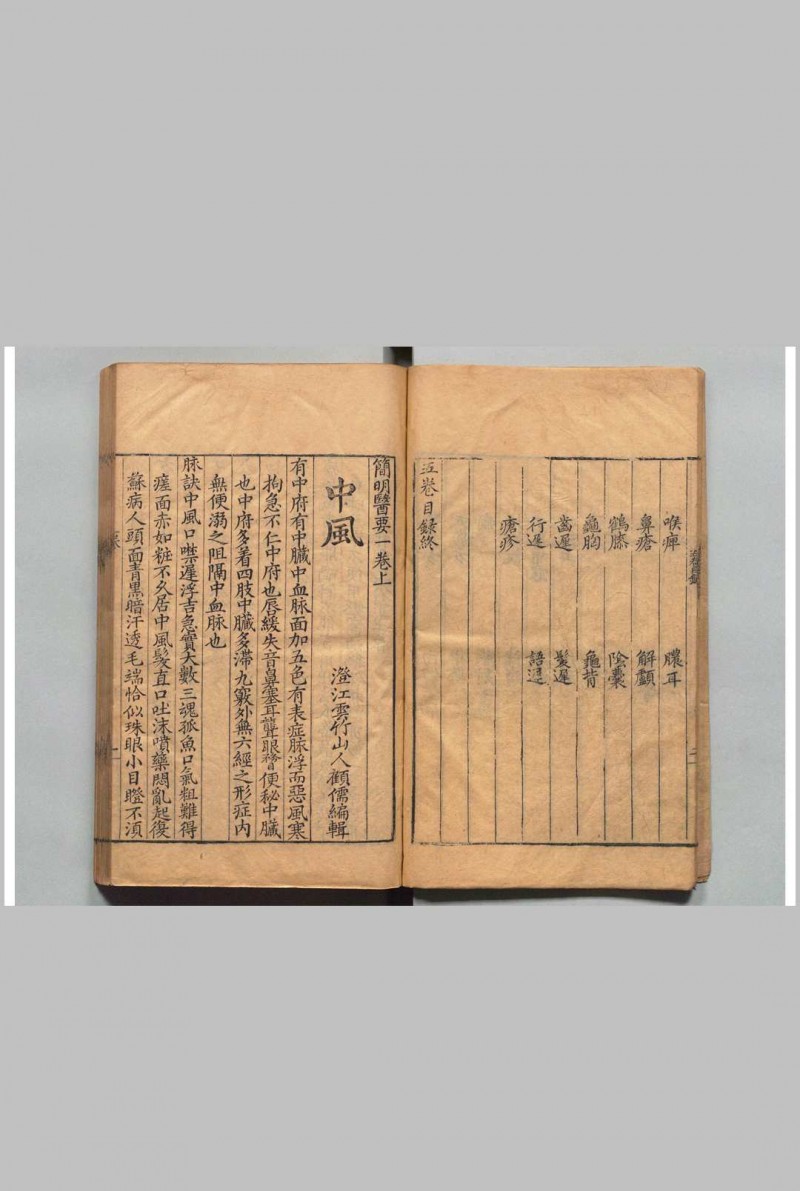 喉痺 膿耳
鼻瘡 解顱
鶴膝 陰囊
龜胸 龜背
齒遲 髮遲
行遲 語遲
瘡疹
五卷目録終
簡明醫要一卷上
澄江雲竹山人顧儒編輯
中風
有中府有中臟中血脉面加五色有表症脉浮而惡風寒
拘急不仁中府也唇緩失音鼻塞耳聾眼瞀便秘中臟
也中府多着四肢中臟多滯九竅外無六經之形症内
無便溺之阻隔中血脉也
脉訣中風口噤遲浮吉急實大數三魂孤魚口氣粗難得
瘥面赤如粧不久居中風髮直口吐沫噴藥悶亂起復
蘇病人頭面青黑暗汗透毛端恰似珠眼小目瞪不須